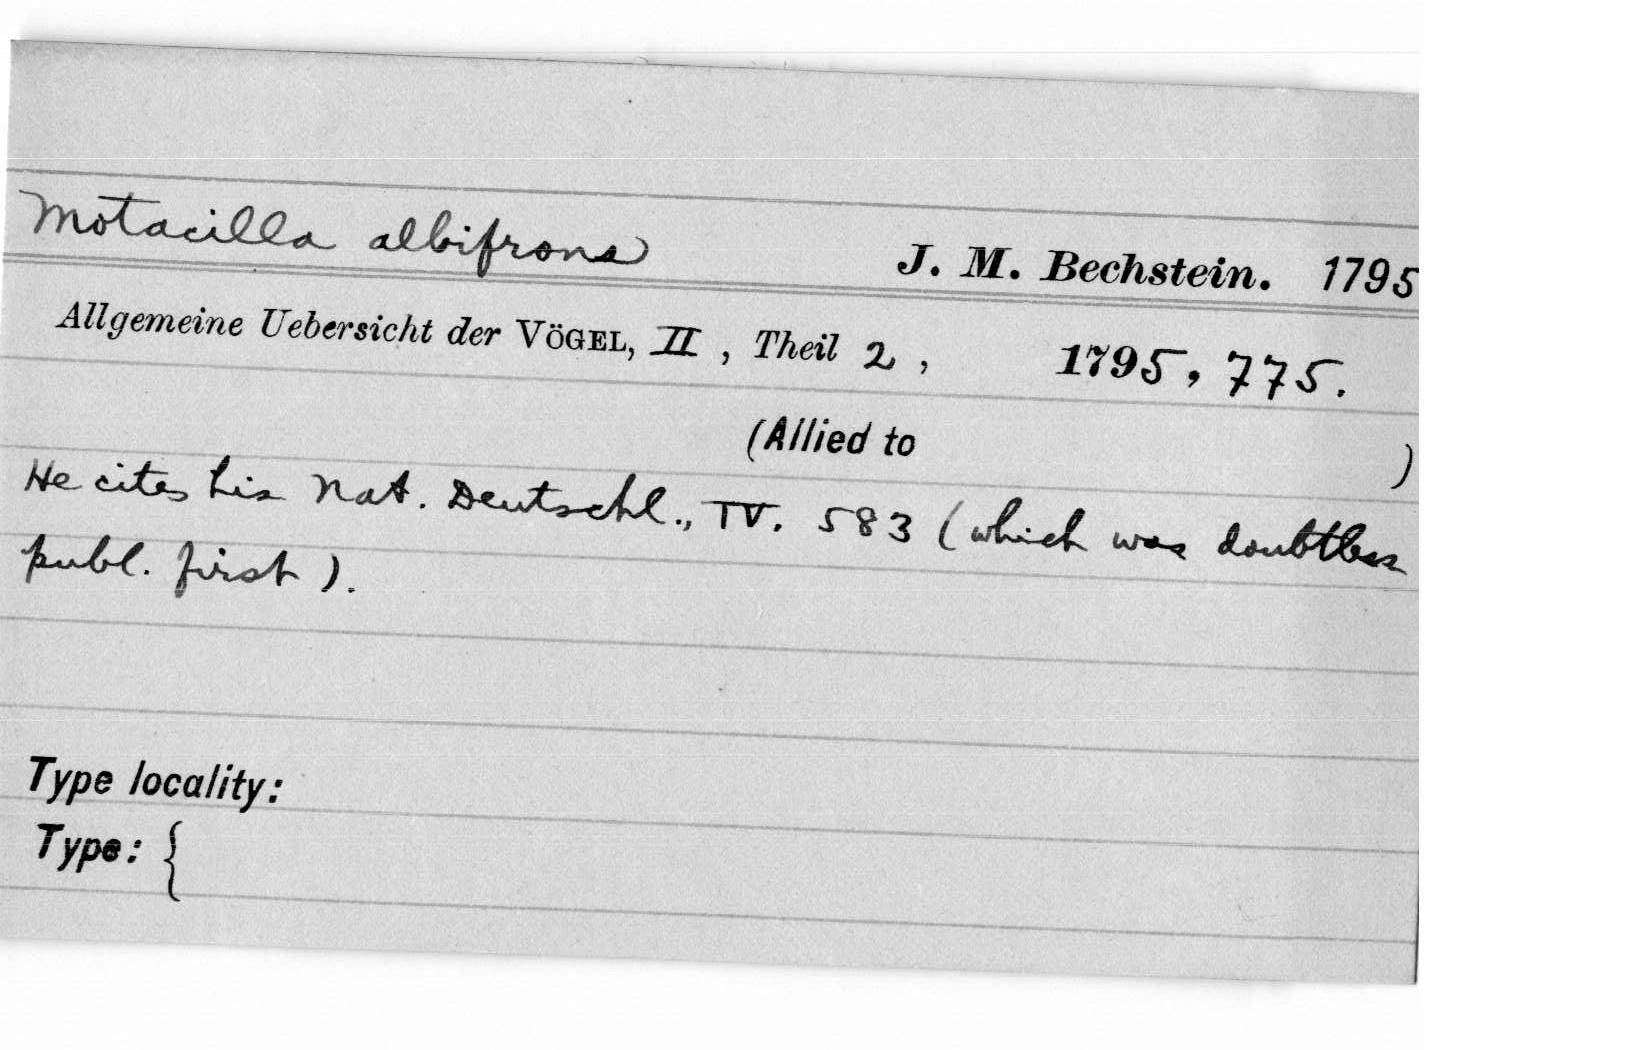 Motacilla albifrons J. M. Bechstein. 1795
Allgemeine Uebersicht der VÖGEL, II , Theil 2 , 1795, 775.
(Allied to )
He cites his Nat. Deutschl., IV. 583 (which was doubtless
publ. first).
Type locality:
Type: {